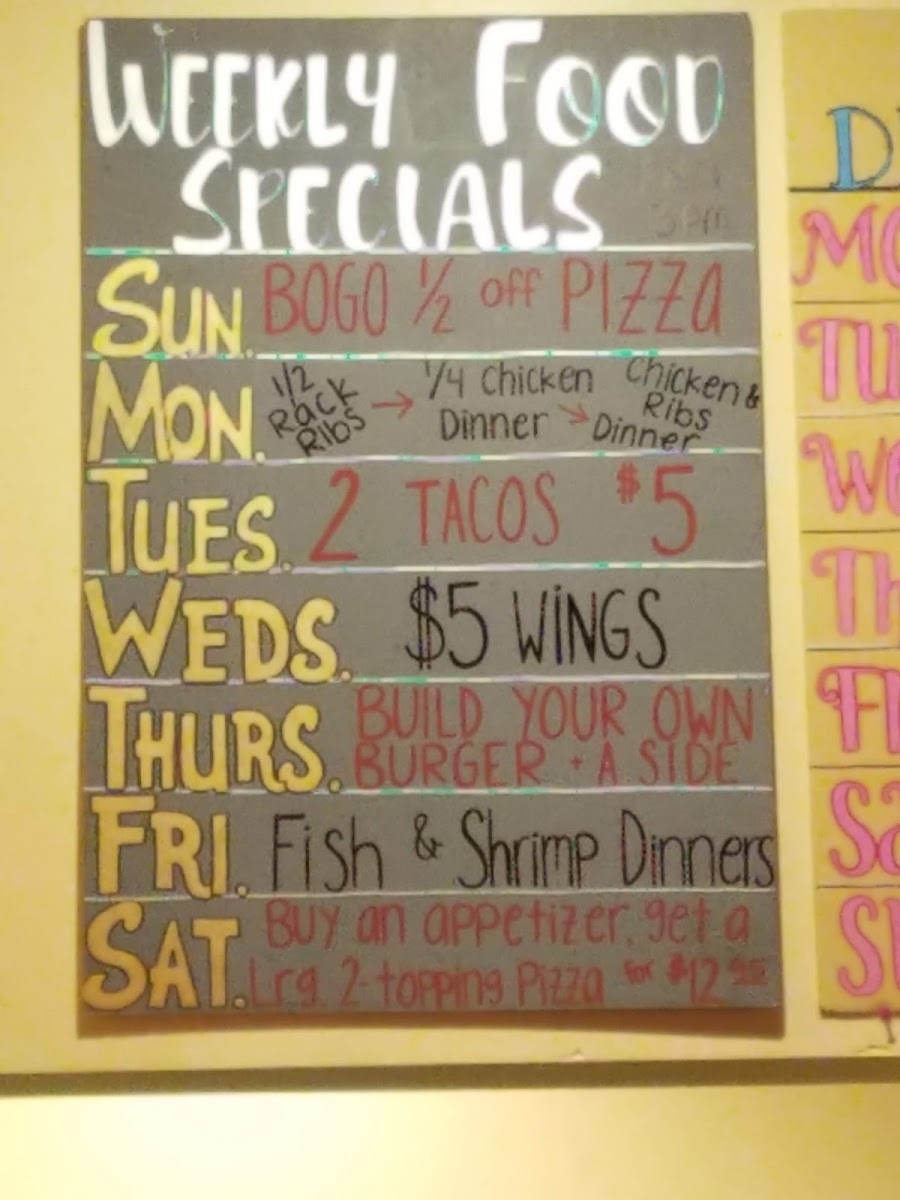 WEEKLY FOOD
SPECIALS
SUN. BOGO 1/2 off PIZZA
MON. 1/2 Rack Ribs → 1/4 Chicken Dinner → Chicken & Ribs Dinner
TUES. 2 TACOS $5
WEDS. $5 WINGS
THURS. BUILD YOUR OWN
BURGER + A SIDE
FRI. Fish & Shrimp Dinners
SAT. Buy an appetizer, get a
Lrg. 2-topping Pizza for $12
D
MO
TU
We
Th
FR
Sa